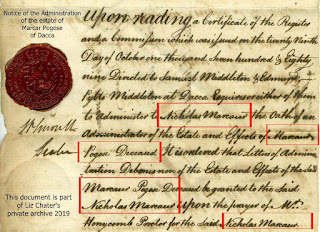 Notice of the Administration
of the estate of
Marcar Pogose
of Dacca
Upon reading a Certificate of the Register
and a Commission which was issued on the twenty Ninth
Day of October one thousand Seven hundred & Eighty
nine Directed to Samuel Middleton & Edmund
Middleton at Dacca Esquires either of them
to administer to Nicholas Marcaur the Oath of an
Administrator of the Estate and Effects of Marcaur
Pogose Deceased It is ordered that Letters of Adminis
tration Debonis non of the Estate and Effects of the said
Marcaur Pogose Deceased be granted to the Said
Nicholas Marcaur Upon the prayer of Mr.
Honycomb Proctor for the Said Nicholas Marcaur
This document is part
of Liz Chater's
private archive 2019